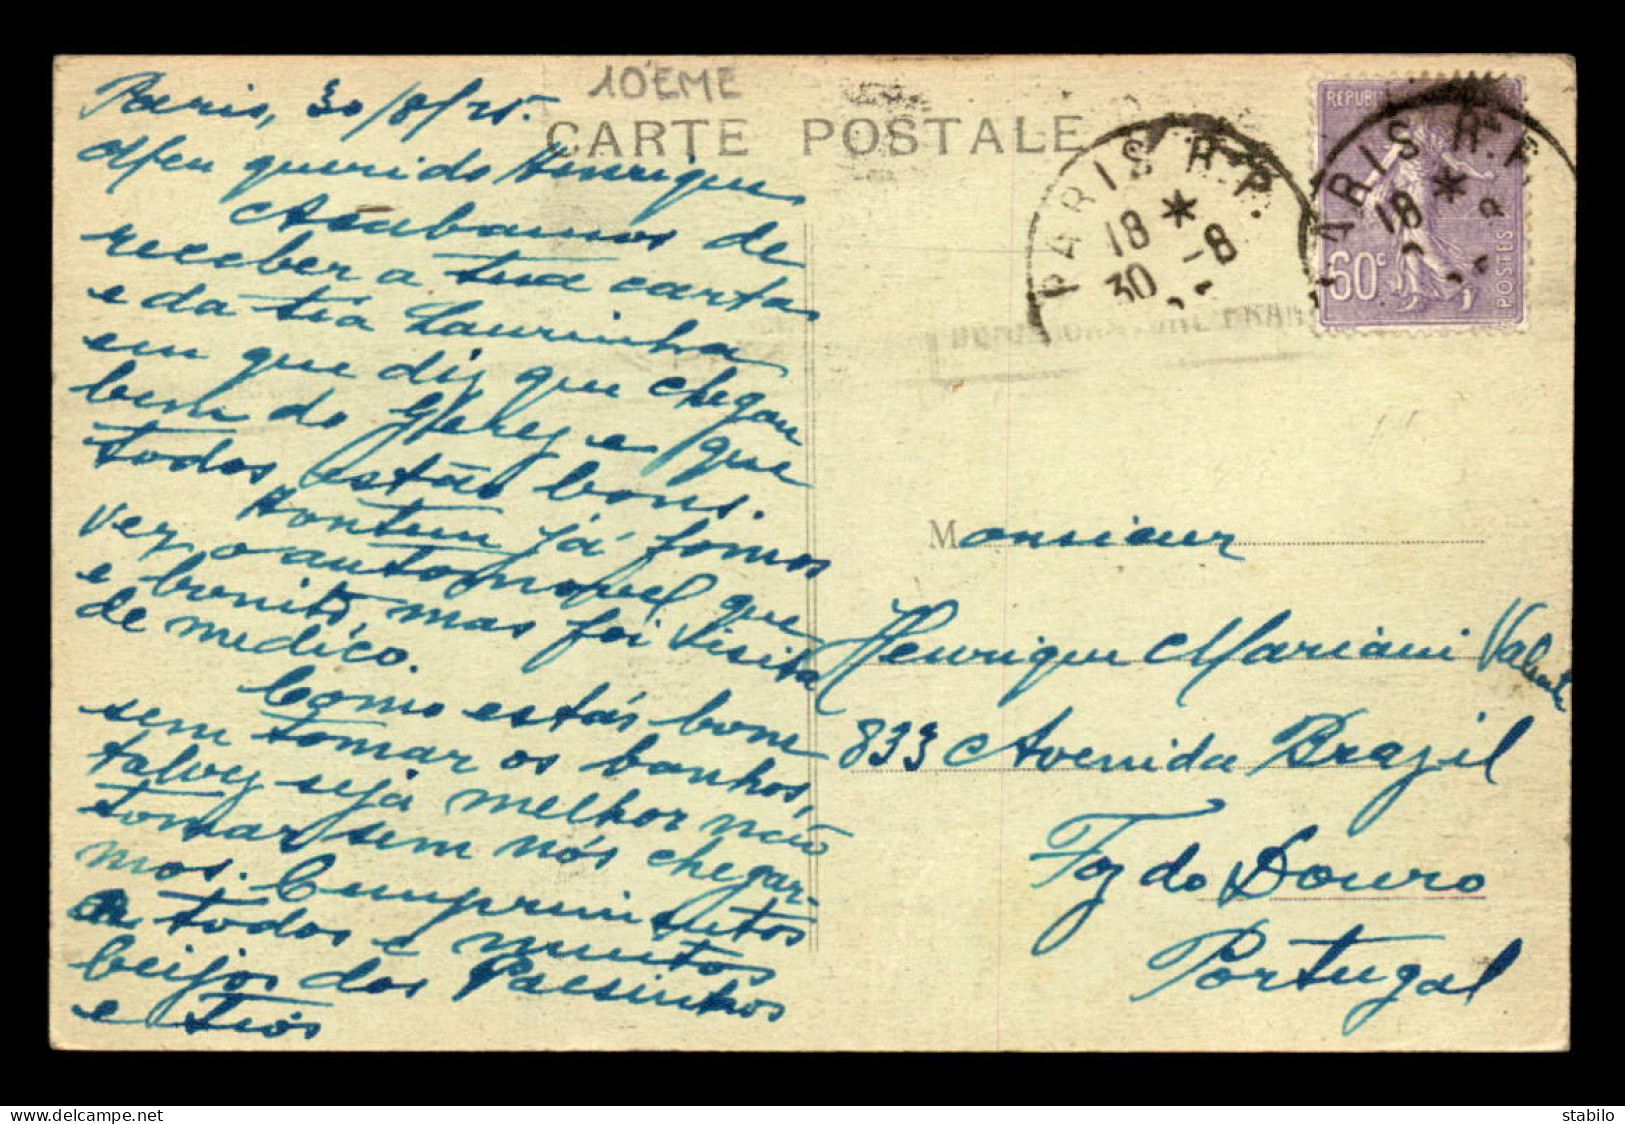 10EME
CARTE POSTALE
Paris, 30/8/25.
Meu querido Henrique
Acabamos de
receber a tua carta
e da tia Laurinha
em que diz que chegou
bem do Gerez e que
todos estão bons.
Hontem já fomos
ver o automovel que
e bonito, mas foi visita
de medico.
Como estás bom
sem tomar os banhos,
talvez seja melhor não
tomar sem nós chegar-
mos. Cumprimentos
a todos e muitos
beijos dos Paesinhos
e tios
REPUB
60c
POSTES
PARIS R.P.
18 *
30 -8
PARIS R.P.
18 *
Monsieur
Henrique Mariani Valente
833 Avenida Brazil
Foz do Douro
Portugal
delcampe.net
stabilo